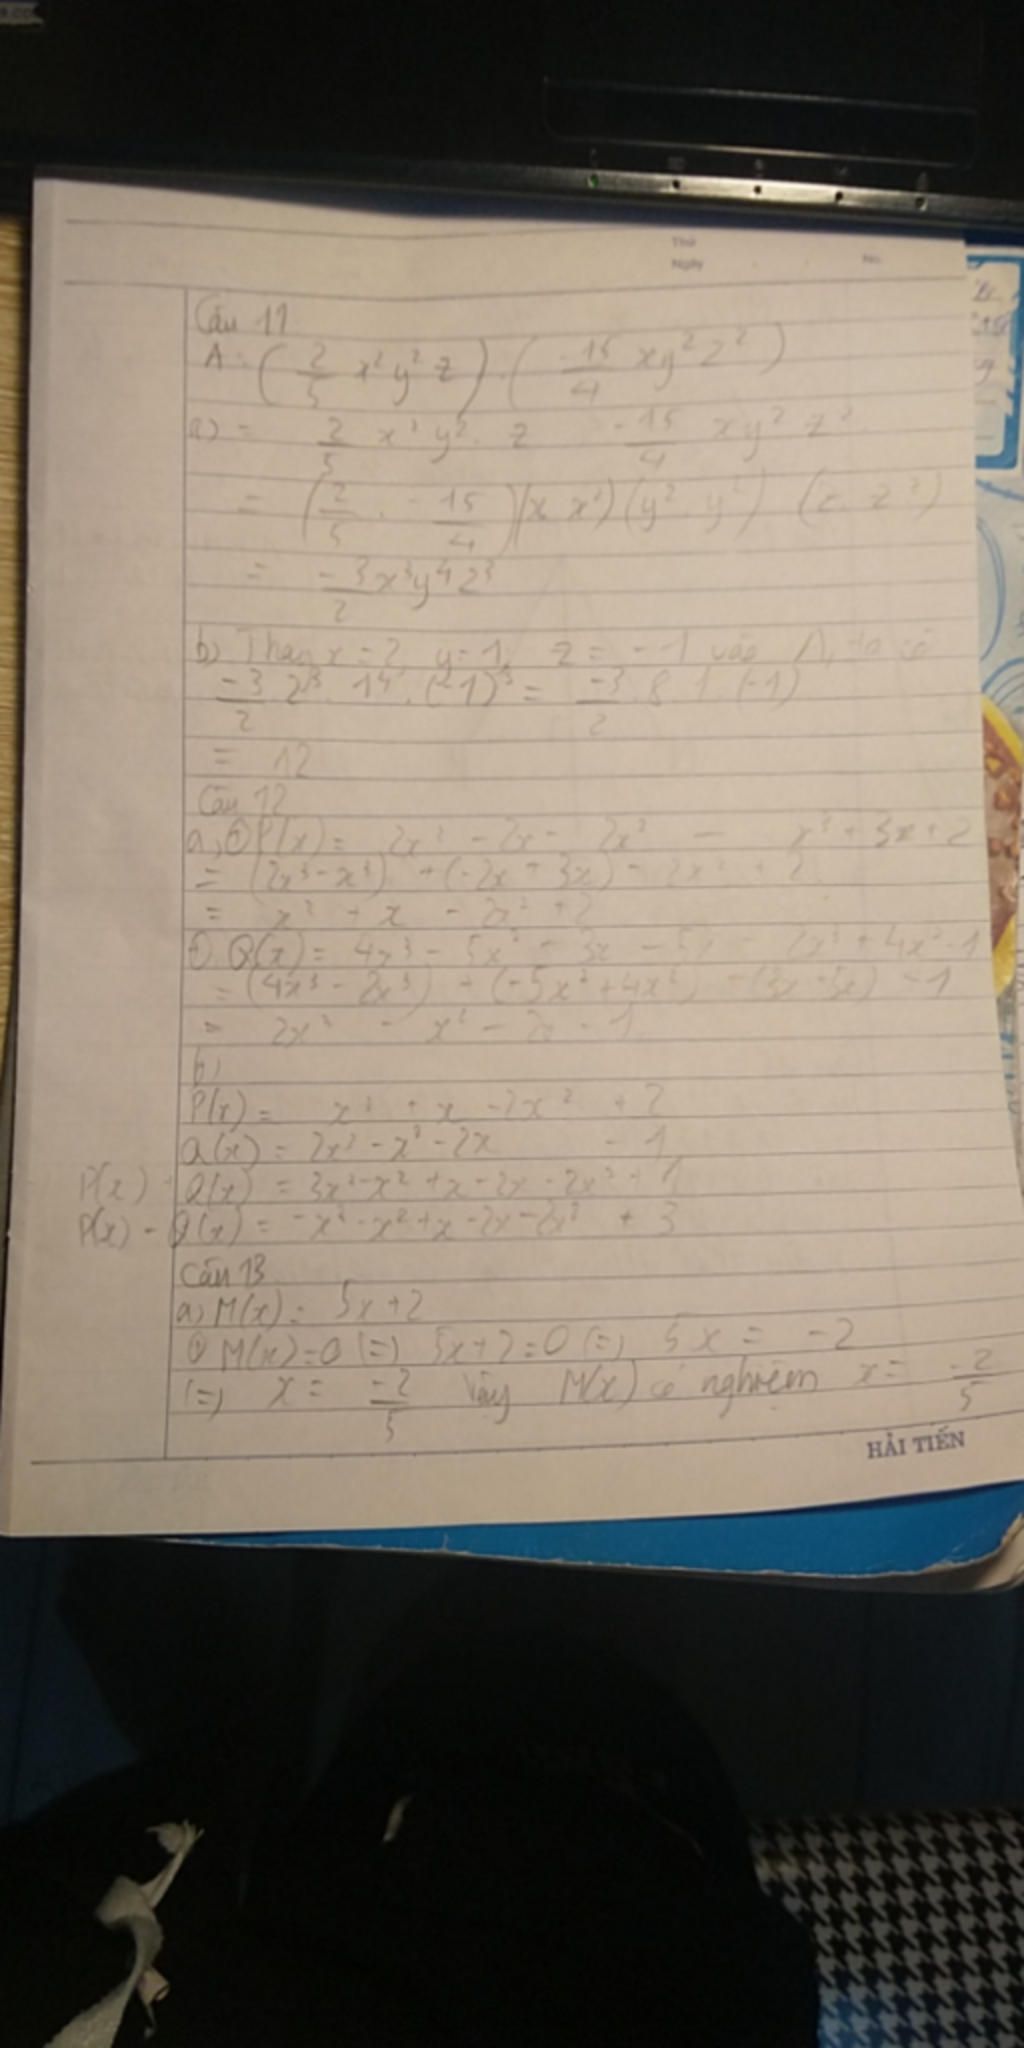 Thứ
Ngày No.
Câu 11
A = (2/5 x²y²z) . (-15/4 xy²z²)
a) = 2/5 x²y². z -15/4 xy² z²
= (2/5 . -15/4)(x.x²)(y².y²) (z.z²)
= -3/2 x³y⁴z³
b) Thay x=2, y=1, z=-1 vào A, ta có
-3/2 . 2³. 1⁴. (-1)³ = -3/2 . 8 . 1 . (-1)
= 12
Câu 12
a, P(x) = 2x³ - 2x - 2x² - x³ + 3x + 2
= (2x³ - x³) + (-2x + 3x) - 2x² + 2
= x³ + x - 2x² + 2
Q(x) = 4x³ - 5x² + 3x - 5x - 2x³ + 4x² - 1
= (4x³ - 2x³) + (-5x² + 4x²) + (3x - 5x) - 1
= 2x³ - x² - 2x - 1
b,
P(x) = x³ + x - 2x² + 2
Q(x) = 2x³ - x² - 2x - 1
P(x) + Q(x) = 3x³ - x² + x - 2x - 2x² + 1
P(x) - Q(x) = -x³ - x² + x - 2x - 2x² + 3
Câu 13
a) M(x) = 5x+2
M(x)=0 (=) 5x+2=0 (=) 5x = -2
(=) x = -2/5 Vậy M(x) có nghiệm x = -2/5
HẢI TIẾN